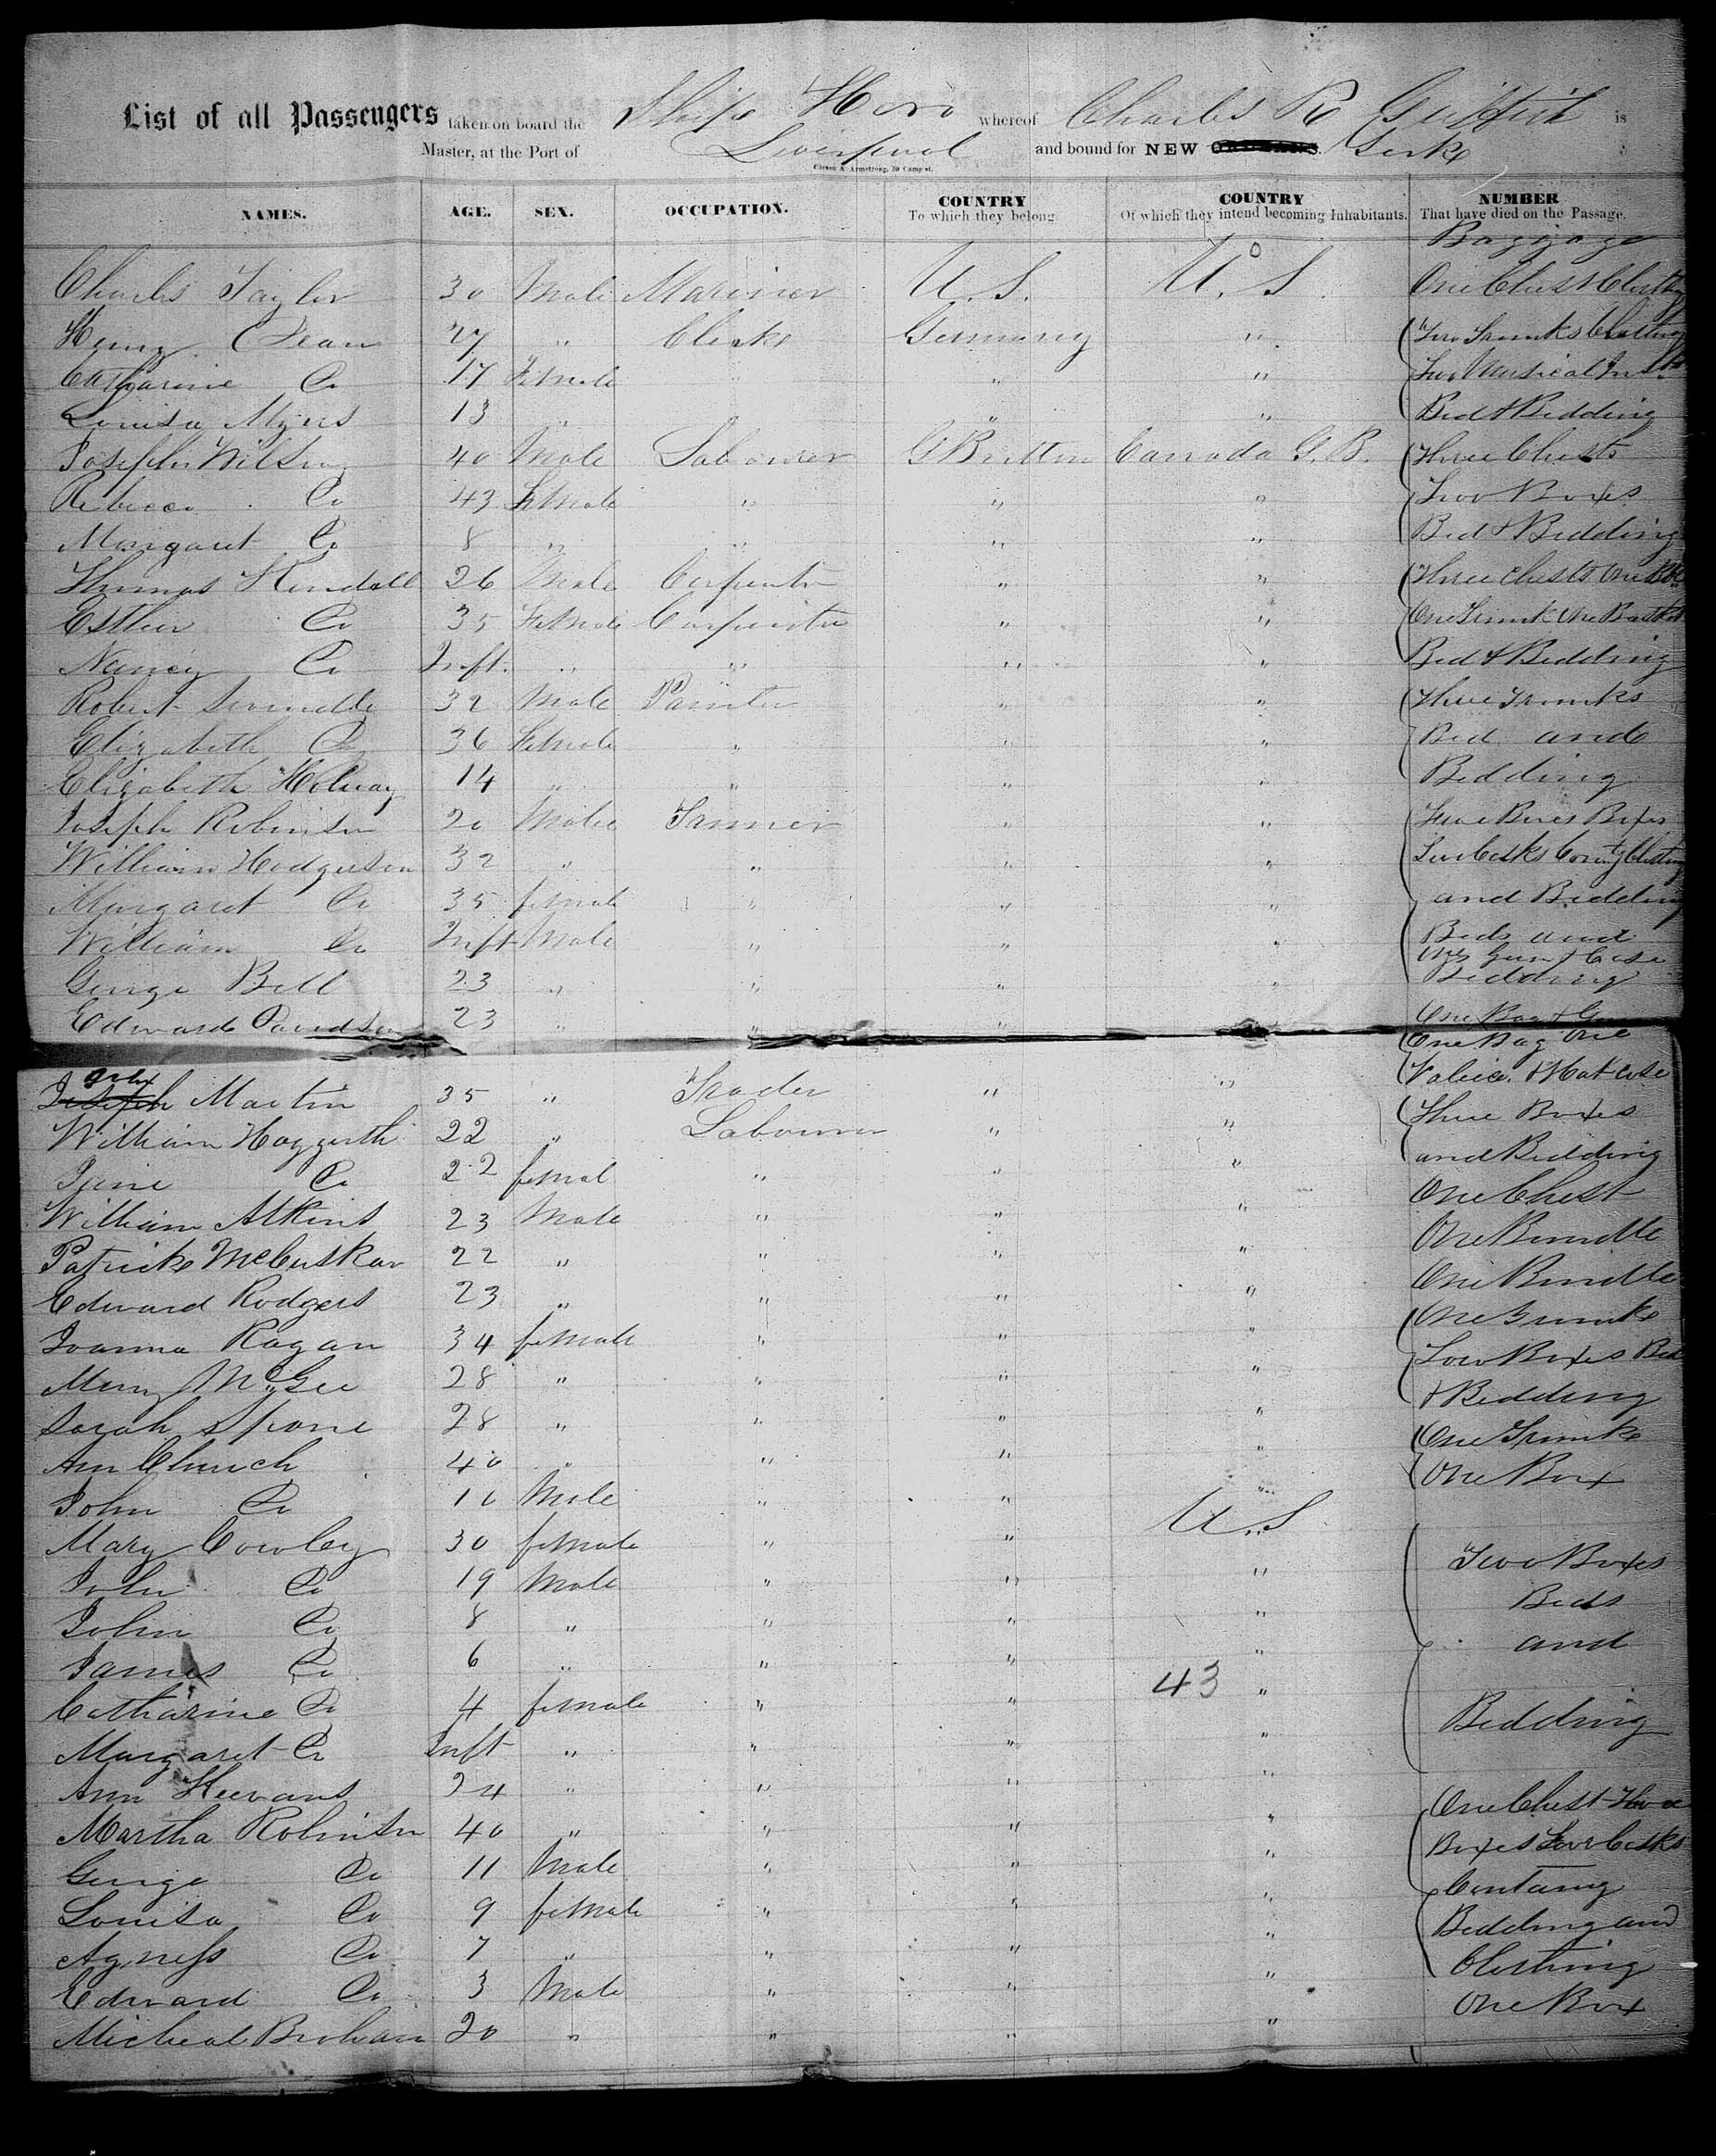 List of all Passengers taken on board the Ship Hero whereof Charles R Griffith is
Master, at the Port of Liverpool and bound for NEW ORLEANS. York
Carson & Armstrong, 59 Camp st.
NAMES. AGE. SEX. OCCUPATION. COUNTRY To which they belong COUNTRY Of which they intend becoming Inhabitants. NUMBER That have died on the Passage.
Baggage
Charles Taylor 30 Male Mariner U.S. U.S. One Chest Clothing
Henry Dean 27 " Clerk Germany " Two Trunks Clothing
Catharine Do 17 Female " " " Two Musical Insts
Louisa Myers 13 " " " Bed & Bedding
Joseph Wilson 40 Male Labourer G Brittan Cannada G.B. Three Chests
Rebecca Do 43 Female " " " Two Boxes
Margaret Do 8 " " " " Bed & Bedding
Thomas Kendall 26 Male Carpenter " " Three Chests One Box
Esther Do 35 Female Carpenter " " One Trunk One Basket
Nancy Do Inft. " " " " Bed & Bedding
Robert 32 Male Painter " " Three Trunks
Elizabeth Do 36 Female " " " Bed and
Elizabeth Holway 14 " " " " Bedding
Joseph Robinson 20 Male Tanner " " Boxes
William Hodgeson 32 " " " " Casks Clothing
Margaret Do 35 female " " " and Bedding
William Do Inft Male " " " Beds and
One Gun & Case
George Bell 23 " " " " Bedding
Edward Davidson 23 " " " One Bag &
One Bag One
Joseph Martin 35 " Trader " " Valice & Hat case
William Haggerth 22 " Labourer " " Three Boxes
Jane Do 22 femal " " " and Bedding
William Atkins 23 Male " " " One Chest
Patrick McCuskar 22 " " " " One Bundle
Edward Rodgers 23 " " " " One Bundle
Joanna Ragan 34 female " " " One Trunk
Mary McGee 28 " " " " Boxes Bed
Sarah Spone 28 " " " " & Bedding
Ann Church 40 " " " " One Trunk
John Do Male " " " One Box
Mary Cowley 30 female " " U.S
John Do 19 Male " " " Two Boxes
John Do 8 " " " " Beds
James Do 6 " " " " and
Catharine Do 4 female " " 43 "
Margaret Do Inft " " " " Bedding
Ann Keevans 24 " " " "
Martha Robinson 40 " " " " One Chest Three
George Do 11 Male " " " Boxes Four Casks
Louisa Do 9 female " " " Containg
Agness Do 7 " " " " Bedding and
Edward Do 3 Male " " " Clothing
Micheal Brohan 20 " " " " One Box